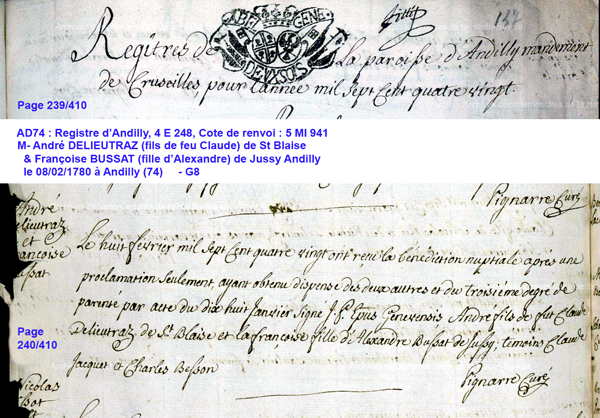 147
GABEL GENE
DEUX SOLS
Regîtres de La paroisse d'Andilly mandement
de Cruseilles pour l'année mil sept Cent quatre vingt.
Page 239/410
AD74 : Registre d'Andilly, 4 E 248, Cote de renvoi : 5 MI 941
M- André DELIEUTRAZ (fils de feu Claude) de St Blaise
& Françoise BUSSAT (fille d'Alexandre) de Jussy Andilly
le 08/02/1780 à Andilly (74) - G8
Pignarre Curé
André
Delieutraz
et
françoise
Bussat
Le huit fevrier mil sept Cent quatre vingt ont reçu la bénédiction nuptiale après une
proclamation seulement, ayant obtenu dispense des deux autres et du troisième degré de
parenté par acte du dix huit Janvier signé J. P. Epus Genevensis André fils de feu Claude
Delieutraz de St Blaise et la françoise fille d'Alexandre Bussat de Jussy; temoins Claude
Jacquet et Charles Besson
Pignarre Curé
Page
240/410
Nicolas